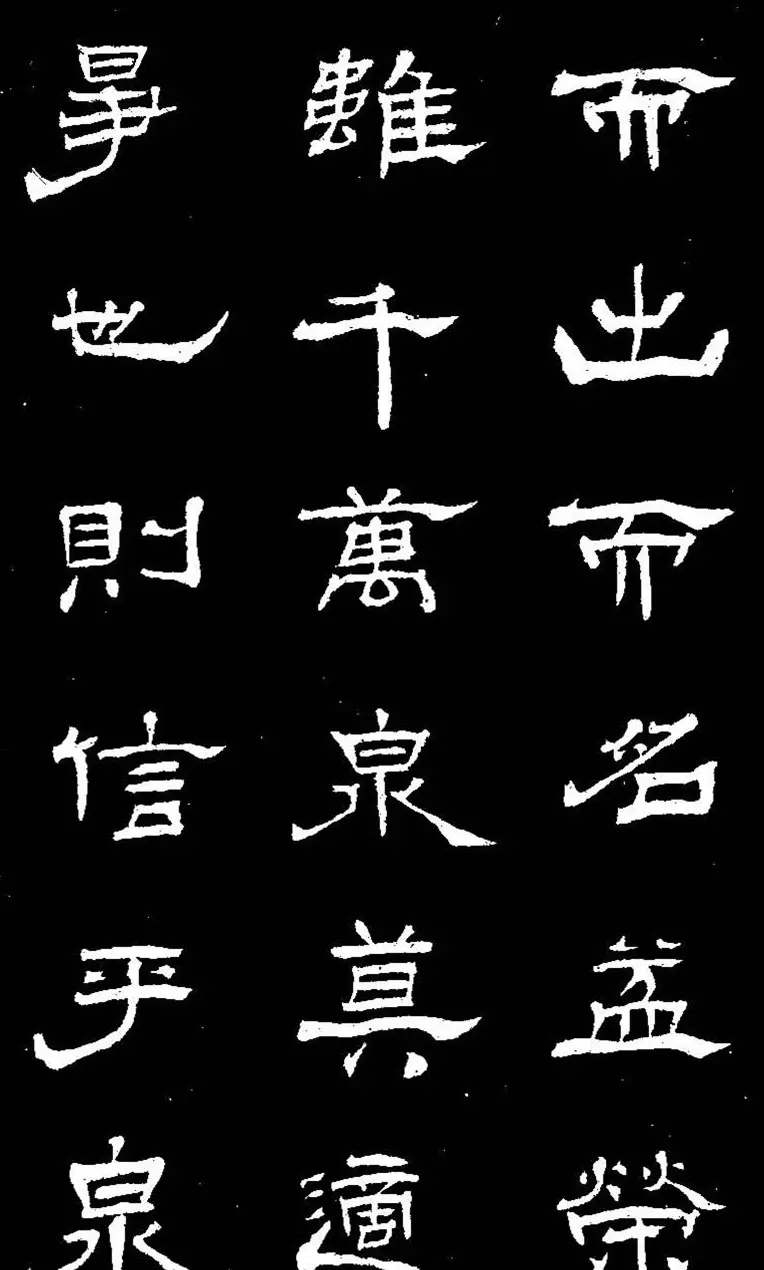 而出而名益榮
雖千萬泉莫適
也則信乎泉